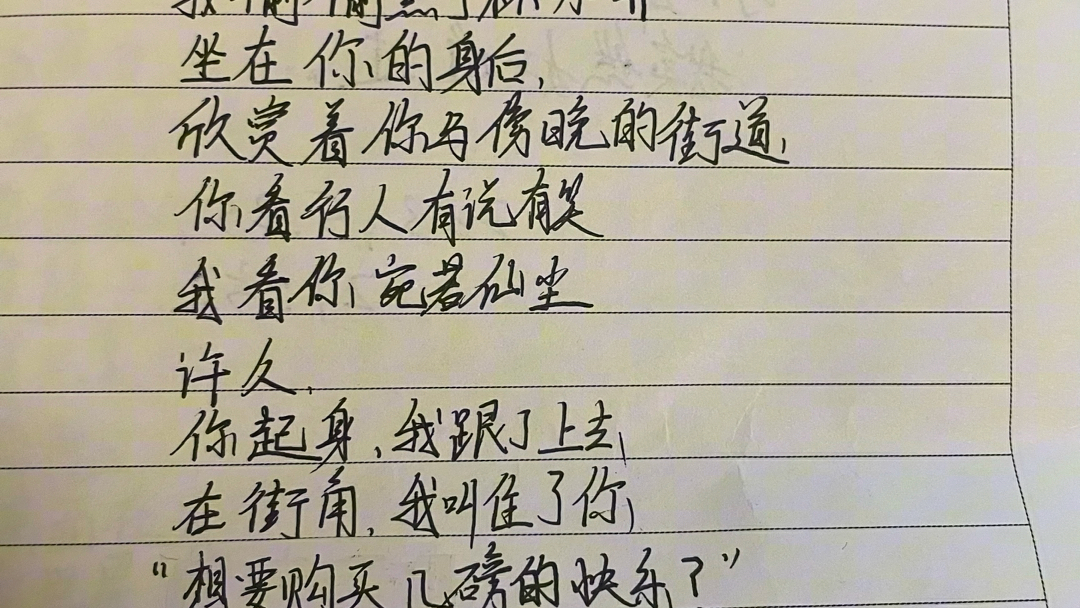 坐在你的身后,
欣赏着你与傍晚的街道,
你看行人有说有笑
我看你宛若仙尘
许久,
你起身,我跟了上去,
在街角,我叫住了你,
“想要购买几磅的快乐?”